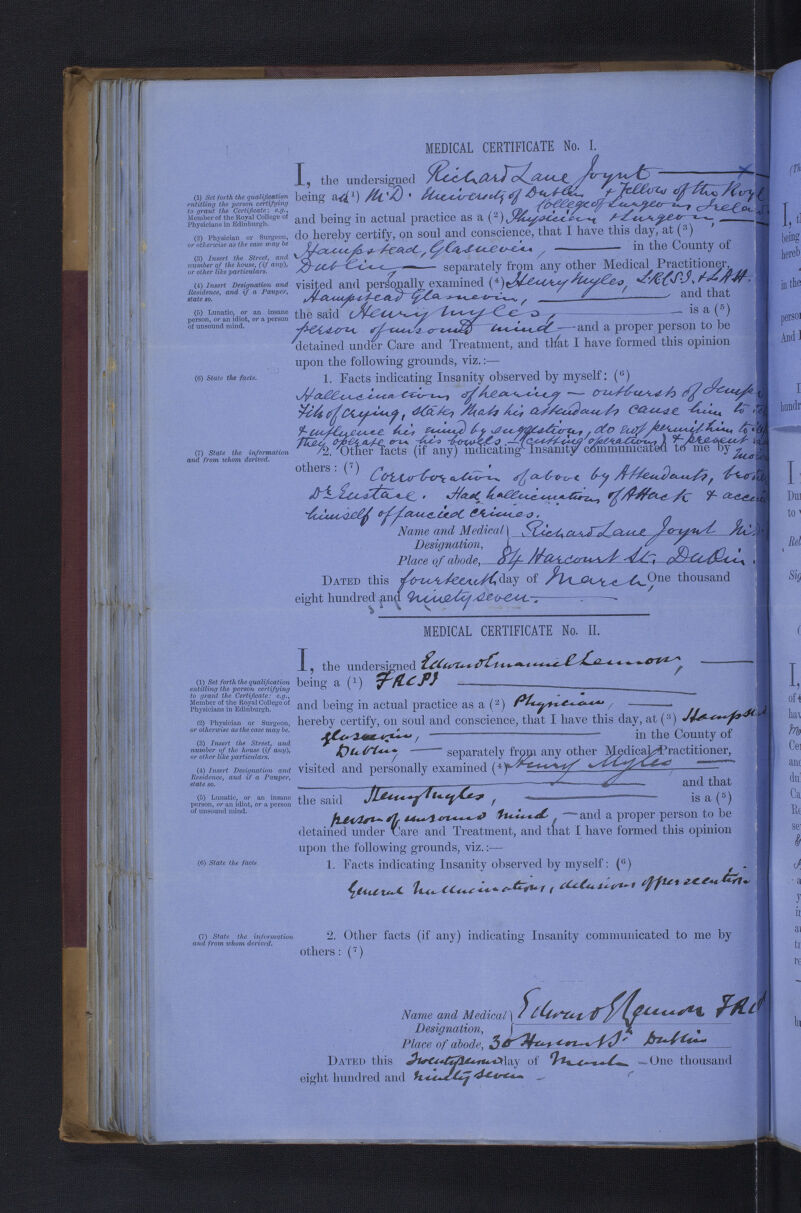 MEDICAL CERTIFICATE No. I.
I, the undersigned Richard Lane Joynt
(1) Set forth the qualification entitling the person certifying to grand the Certificate: e.g., Member of the Royal College of Physicians in Edinburgh.
being a (1) M.D. University of Dublin & Fellow of the Royl
College of Surgeons Irelan
and being in actual practice as a (2) Physician & Surgeon,
(2) Physician or Surgeon, or otherwise as the case may be
do hereby certify, on soul and conscience, that I have this day, at (3)
Hampstead, Glasnevin, in the County of
(3) Insert the Street, and number of the house, (if any), or other like particulars.
Dublin separately from any other Medical Practitioner,
(4) Insert Designation and Residence, and if a Pauper, state so.
visited and personally examined (4) Henry Myles, L.R.C.S.I. & L.A.H.
Hampstead Glasnevin, and that
(5) Lunatic, or an insane person, or an idiot, or a person of unsound mind.
the said Henry Myles, is a (5)
person of unsound mind and a proper person to be
detained under Care and Treatment, and that I have formed this opinion
upon the following grounds, viz.:—
(6) State the facts.
1. Facts indicating Insanity observed by myself: (6)
Hallucinations of hearing — outbursts of
Fits of crying, states that his attendants cause him to
& influence his mind by suggestions, do not permit him to
they operate on his bowels (cutting operations) & prevent
(7) State the information and from whom derived.
2. Other facts (if any) indicating Insanity communicated to me by
others: (7) Corroboration of above by Attendants,
Dr. Eustace. Had hallucinations of Attack &
himself of fancied crimes.
Name and Medical Designation, Richard Lane Joynt M.D.
Place of abode, 84 Harcourt St. Dublin.
DATED this fourteenth day of March One thousand
eight hundred and ninety seven.
MEDICAL CERTIFICATE No. II.
I, the undersigned Edward Emmanuel Lennon,
(1) Set forth the qualification entitling the person certifying to grand the Certificate: e.g., Member of the Royal College of Physicians in Edinburgh.
being a (1) FRCPI
and being in actual practice as a (2) Physician,
(2) Physician or Surgeon, or otherwise as the case may be.
hereby certify, on soul and conscience, that I have this day, at (3)
Glasnevin, in the County of
(3) Insert the Street, and number of the house (if any), or other like particulars.
Dublin separately from any other Medical Practitioner,
(4) Insert Designation and Residence, and if a Pauper, state so.
visited and personally examined (4) Henry Myles
and that
(5) Lunatic, or an insane person, or an idiot, or a person of unsound mind.
the said Henry Myles, is a (5)
person of unsound mind, —and a proper person to be
detained under Care and Treatment, and that I have formed this opinion
upon the following grounds, viz.:—
(6) State the facts
1. Facts indicating Insanity observed by myself: (6)
General hallucinations, delusions of persecution
(7) State the information and from whom derived.
2. Other facts (if any) indicating Insanity communicated to me by
others: (7)
Name and Medical Designation, Edward E Lennon
Place of abode, Harcourt St Dublin
DATED this day of March One thousand
eight hundred and ninety seven